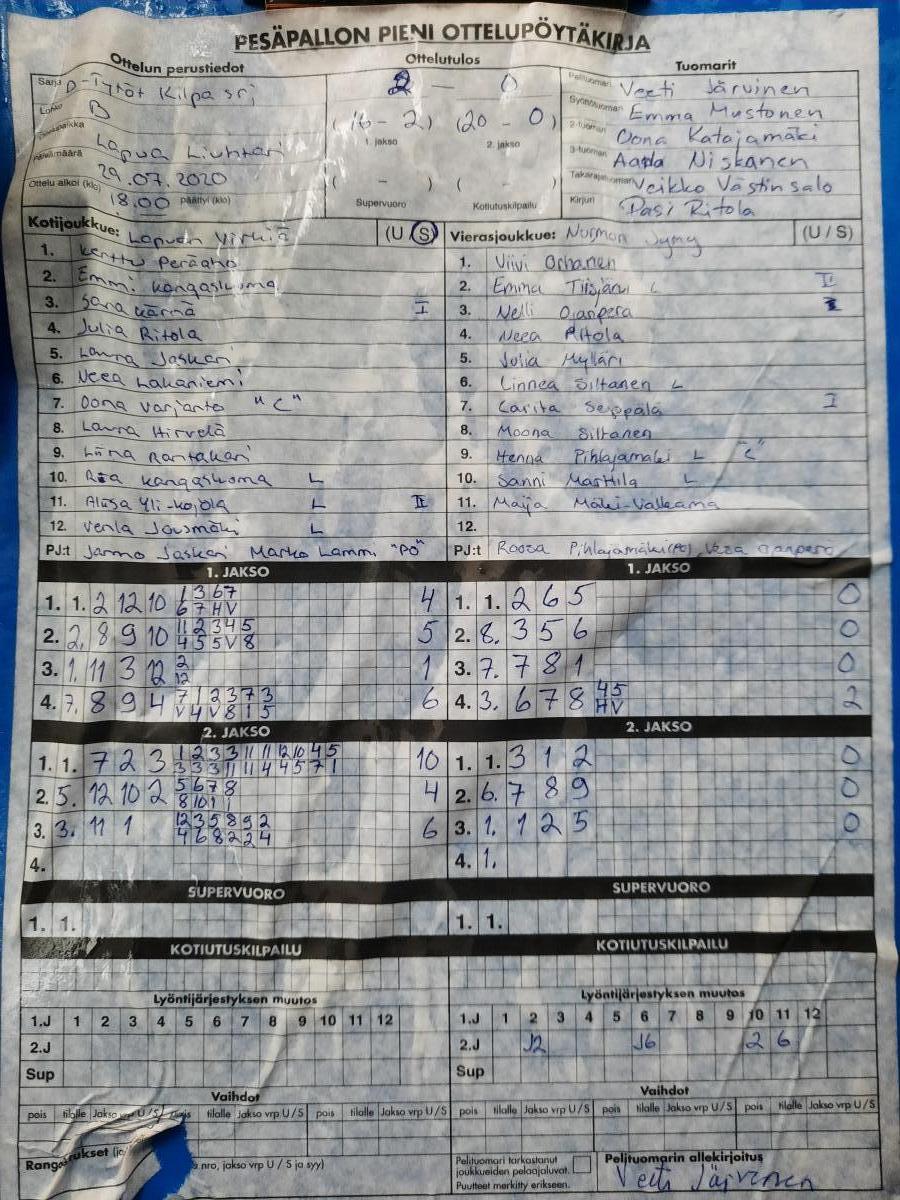 PESÄPALLON PIENI OTTELUPÖYTÄKIRJA
Ottelun perustiedot Ottelutulos Tuomarit
Sarja D-Tytöt Kilpa srj 2 - 0 Pelituomari Veeti Järvinen
Lohko B Syöttötuomari Emma Mustonen
Lapua Liuhtari (16 - 2) (20 - 0) 2-tuomari Oona Katajamäki
1. jakso 2. jakso 3-tuomari Aada Niskanen
Päivämäärä 29.07.2020 ( - ) ( - ) Takarajatuomari Veikko Västinsalo
Ottelu alkoi (klo) 18.00 päättyi (klo) Supervuoro Kotiutuskilpailu Kirjuri Pasi Ritola
Kotijoukkue: Lapuan Virkiä (U/S) Vierasjoukkue: Nurmon Jymy (U/S)
1. Kerttu Perääho 1. Viivi Orhanen
2. Emmi Kangasluoma 2. Emma Tiisjärvi L II
3. Sara Kärmä I 3. Nelli Ojanperä I
4. Julia Ritola 4. Neea Ritola
5. Laura Jaskari 5. Julia Mylläri
6. Neea Lahaniemi 6. Linnea Siltanen L
7. Oona Varjanto "C" 7. Carita Seppälä I
8. Laura Hirvelä 8. Moona Siltanen
9. Liina Rantakari 9. Henna Pihlajamäki L "C"
10. Kangasluoma L 10. Sanni Marttila L
11. Aliisa Yli-Kojola L II 11. Maija Mäki-Valkama
12. Venla Jousmäki L 12.
PJ:t Jarmo Jaskari Marko Lammi "PO" PJ:t Roosa Pihlajamäki(PO), Vesa Ojanperä
1. JAKSO 1. JAKSO
1. 1. 2 12 10 1 3 6 7 4 1. 1. 2 6 5 0
6 7 H V
2. 2. 8 9 10 11 2 3 4 5 5 2. 8. 3 5 6 0
4 5 5 V 8
3. 1. 11 3 12 2 1 3. 7. 7 8 1 0
12
4. 7. 8 9 4 7 1 2 3 7 3 6 4. 3. 6 7 8 4 5 2
V 4 V 8 1 5 H V
2. JAKSO 2. JAKSO
1. 1. 7 2 3 1 2 3 3 11 11 12 10 4 5 10 1. 1. 3 1 2 0
3 3 3 11 11 4 4 5 7 1
2. 5. 12 10 2 5 6 7 8 4 2. 6. 7 8 9 0
8 10 1 1
3. 3. 11 1 12 3 5 8 9 2 6 3. 1. 1 2 5 0
4 6 8 2 2 4
4. 4. 1.
SUPERVUORO SUPERVUORO
1. 1. 1. 1.
KOTIUTUSKILPAILU KOTIUTUSKILPAILU
Lyöntijärjestyksen muutos Lyöntijärjestyksen muutos
1.J 1 2 3 4 5 6 7 8 9 10 11 12 1.J 1 2 3 4 5 6 7 8 9 10 11 12
2.J 2.J J2 J6 2 6
Sup Sup
Vaihdot Vaihdot
pois tilalle Jakso vrp U/S pois tilalle Jakso vrp U/S pois tilalle Jakso vrp U/S pois tilalle Jakso vrp U/S pois tilalle Jakso vrp U/S pois tilalle Jakso vrp U/S
nro, jakso vrp U / S ja syy) Pelituomari tarkastanut joukkueiden pelaajaluvat. Pelituomarin allekirjoitus
Puutteet merkitty erikseen. Veeti Järvinen